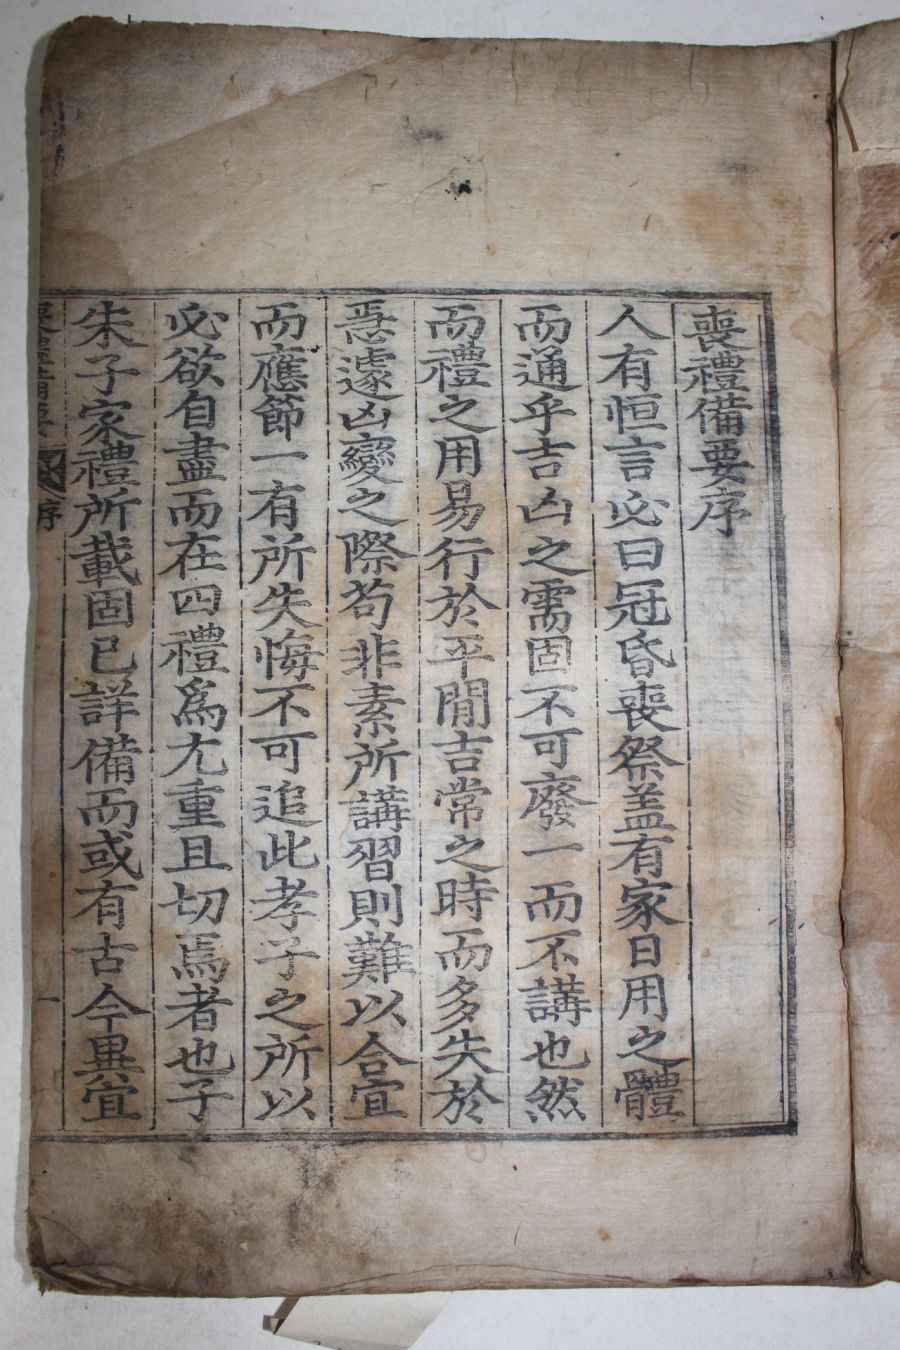 喪禮備要序
人有恒言必曰冠昏喪祭盖有家日用之體
而通乎吉凶之需固不可廢一而不講也然
而禮之用易行於平閒吉常之時而多失於
遑遽凶變之際苟非素所講習則難以合宜
而應節一有所失悔不可追此孝子之所以
必欲自盡而在四禮爲尤重且切焉者也子
朱子家禮所載固已詳備而或有古今異宜
喪禮備要 序 一